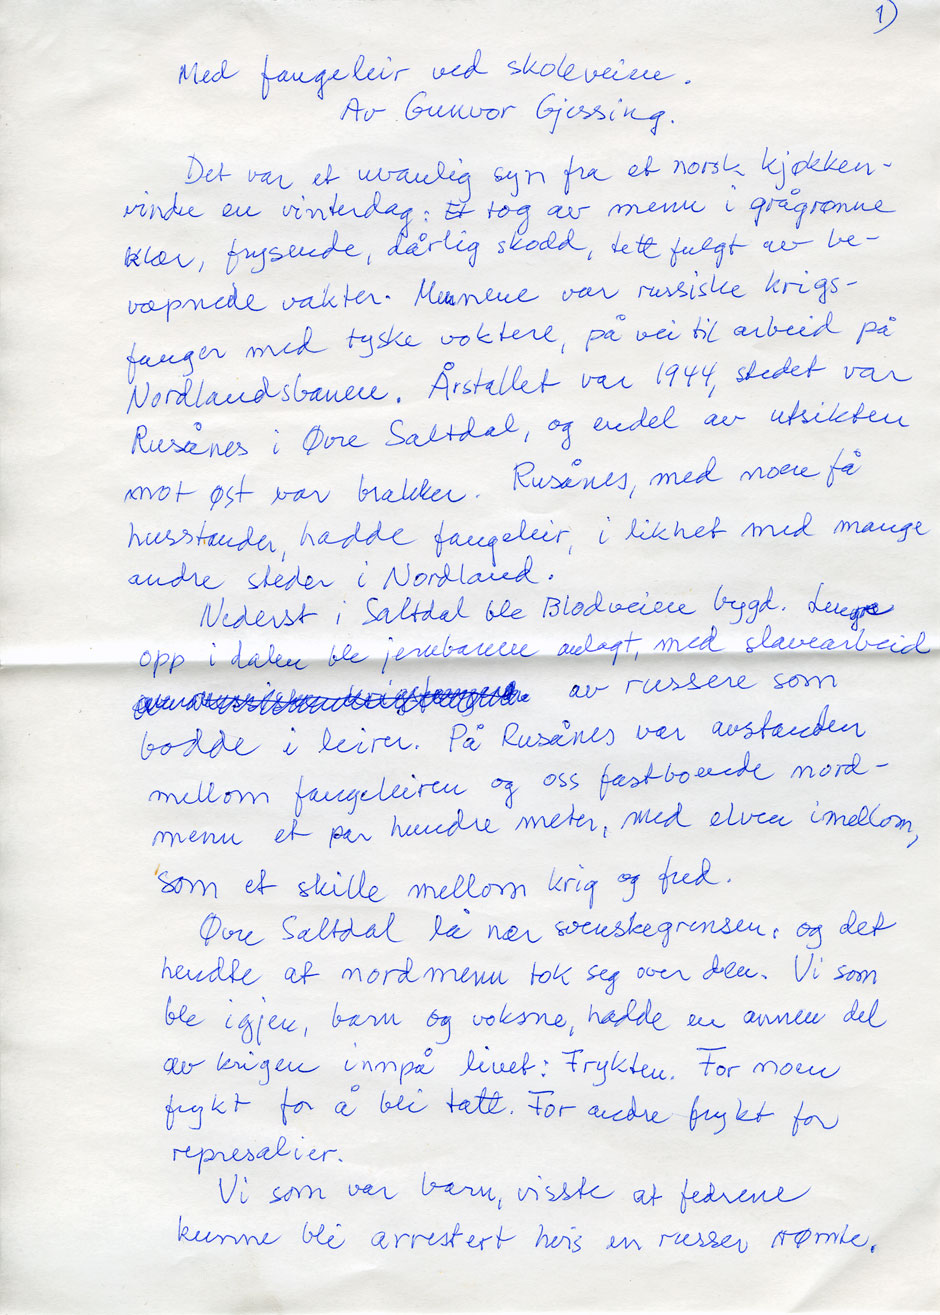 1)
Med fangeleir ved skoleveien.
Av Gunvor Gjessing.
Det var et uvanlig syn fra et norsk kjøkken-
vindu en vinterdag: Et tog av menn i grågrønne
klær, frysende, dårlig skodd, tett fulgt av be-
væpnede vakter. Mennene var russiske krigs-
fanger med tyske voktere, på vei til arbeid på
Nordlandsbanen. Årstallet var 1944, stedet var
Rusånes i Øvre Saltdal, og endel av utsikten
mot øst var brakker. Rusånes, med noen få
husstander, hadde fangeleir, i likhet med mange
andre steder i Nordland.
Nederst i Saltdal ble Blodveien bygd. Lengre
opp i dalen ble jernbanen anlagt, med slavearbeid
av russere som
bodde i leirer. På Rusånes var avstanden
mellom fangeleiren og oss fastboende nord-
menn et par hundre meter, med elven imellom,
som et skille mellom krig og fred.
Øvre Saltdal lå nær svenskegrensen, og det
hendte at nordmenn tok seg over den. Vi som
ble igjen, barn og voksne, hadde en annen del
av krigen innpå livet: Frykten. For noen
frykt for å bli tatt. For andre frykt for
represalier.
Vi som var barn, visste at fedrene
kunne bli arrestert hvis en russer rømte.